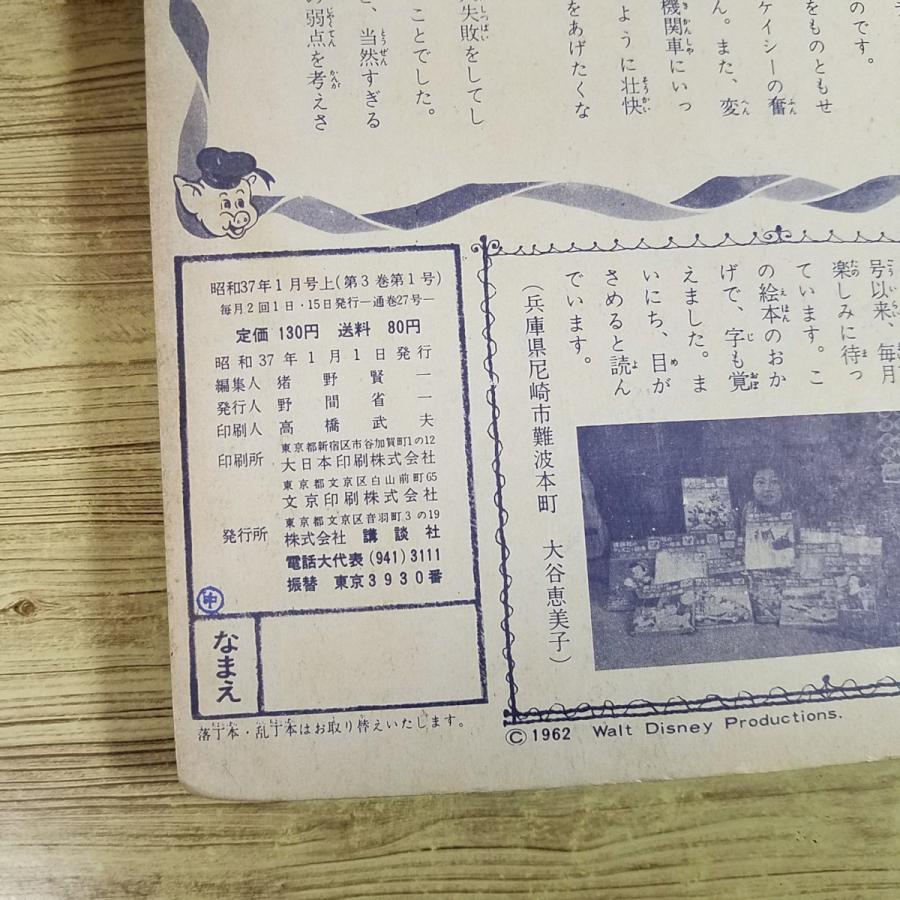 のです。
をものともせ
ケイシーの奮
ん。また、変
機関車にいっ
ように壮快
をあげたくな
失敗をしてし
ことでした。
、当然すぎる
の弱点を考えさ
昭和37年1月号上(第3巻第1号)
毎月2回1日・15日発行―通巻27号―
定価 130円 送料 80円
昭和37年1月1日発行
編集人 猪野賢一
発行人 野間省一
印刷人 高橋武夫
東京都新宿区市谷加賀町1の12
印刷所 大日本印刷株式会社
東京都文京区白山前町65
文京印刷株式会社
東京都文京区音羽町3の19
発行所 株式会社 講談社
電話大代表(941)3111
振替 東京3930番
中
なまえ
落丁本・乱丁本はお取り替えいたします。
号以来、毎月
楽しみに待っ
ています。こ
の絵本のおか
げで、字も覚
えました。ま
いにち、目が
さめると読ん
でいます。
(兵庫県尼崎市難波本町 大谷恵美子)
© 1962 Walt Disney Productions.